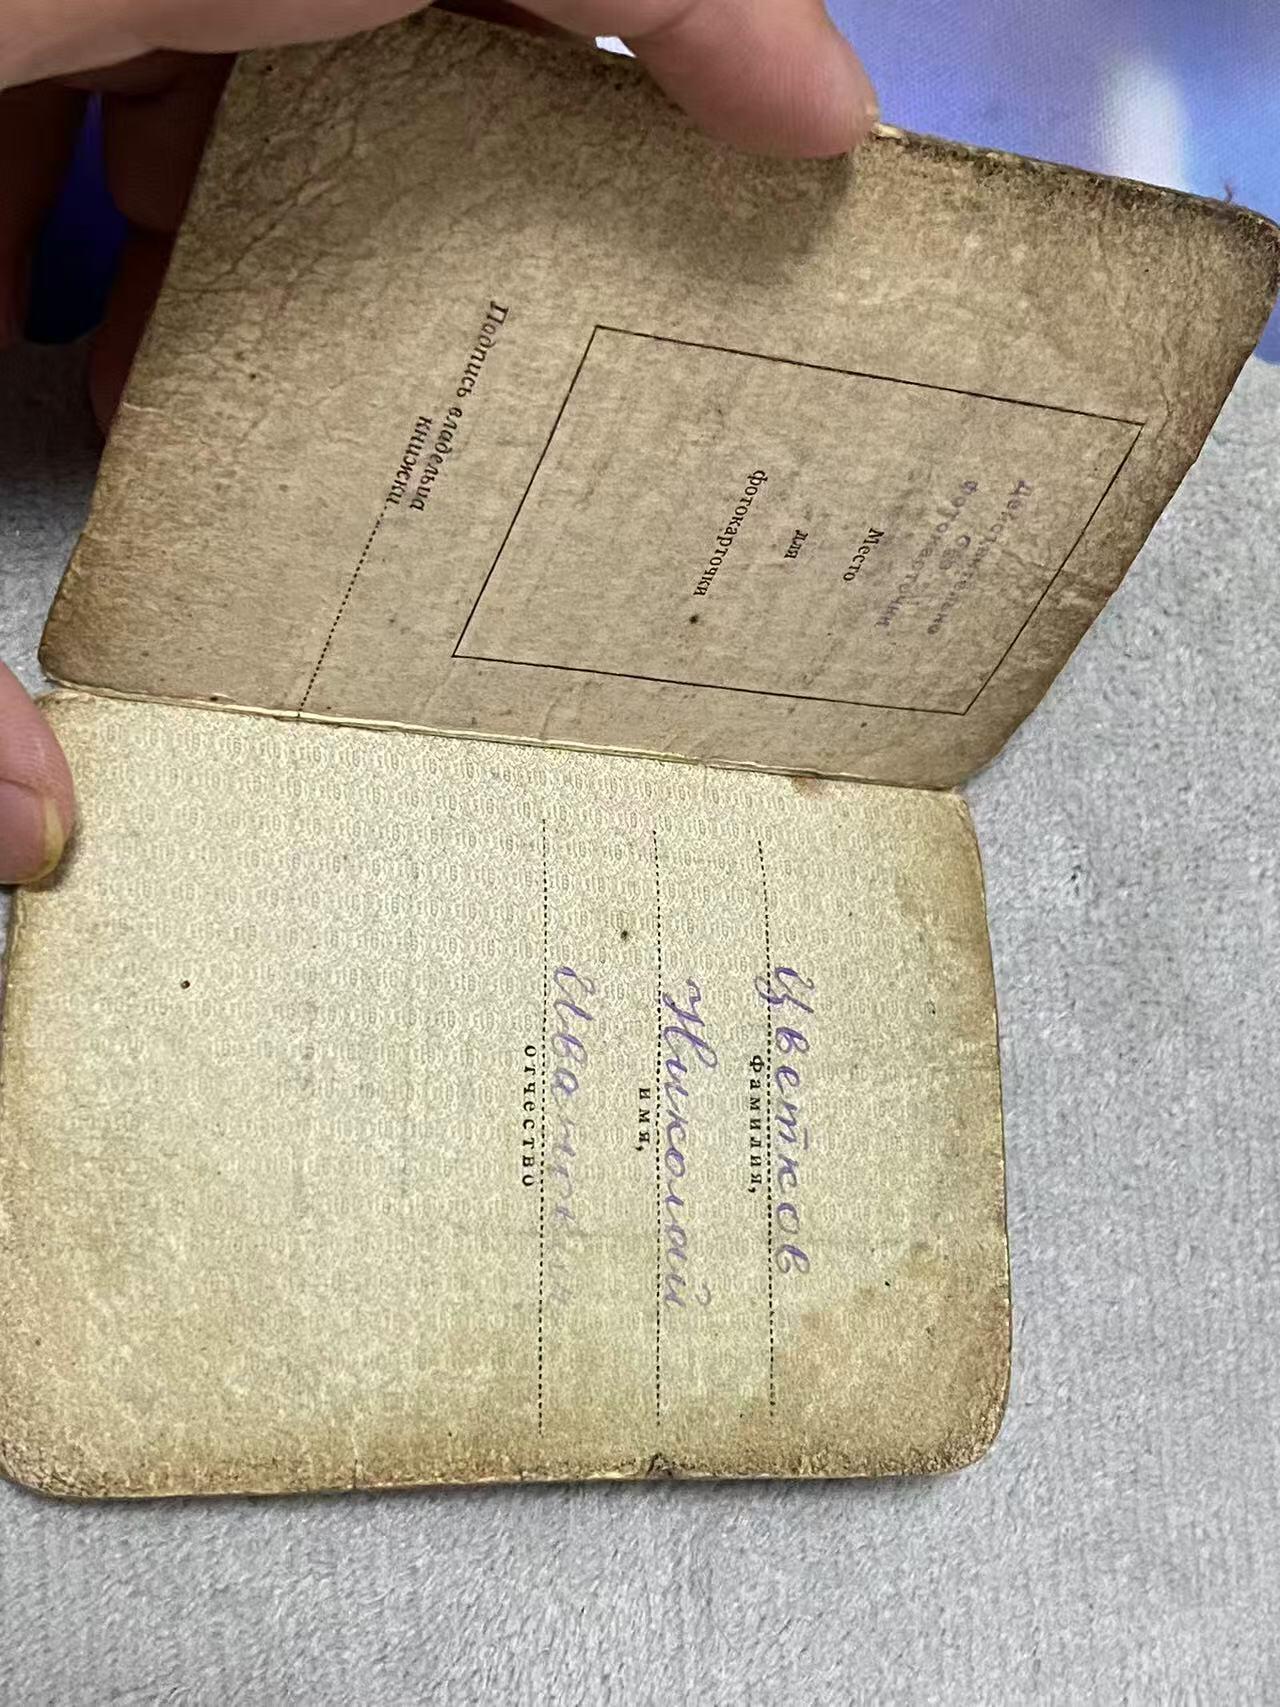 Действительно
без
фотокарточки
Место
для
фотокарточки
Подпись владельца
книжки
Цветков
фамилия,
Николай
имя,
отчество